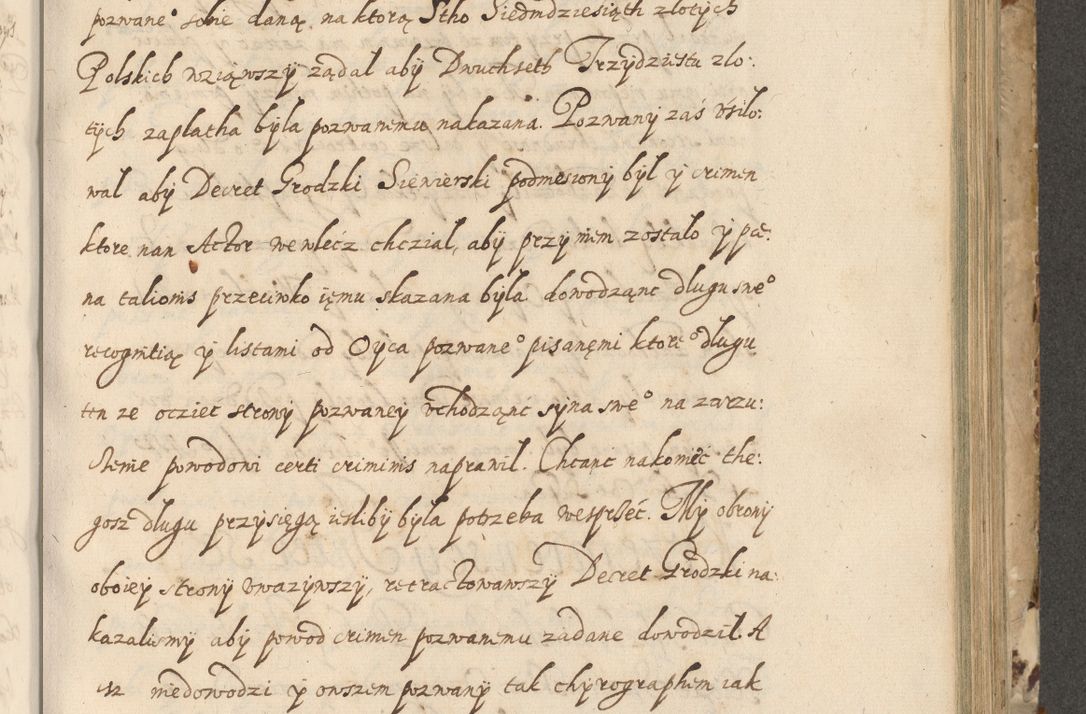 pozwane° sobie daną na ktorą Stho Siedmdziesiąth złotych
Polskich wziąwszÿ ządał abÿ Dwuchseth Trzÿdziestu zło:
tÿch zapłatha bÿla pozwanemu nakazana. Pozwanÿ zaś vsiło:
wał abÿ Decret Grodzki Siewierski podniesionÿ bÿł ÿ crimen
ktore nan Actor wewlećz chczial, abÿ przÿ niem zostało ÿ pæ:
na talionis przeciwko iemu skazana bÿla dowodząnc długu swe°
recognitią ÿ listami od Oÿca pozwane° pisanęmi ktore° długu
ten ze oczięc stronÿ pozwaneÿ vchodząnc sÿna swe° na zarzu:
cżenie powodowi certi criminis naprawił. Chcanc nakoniec the:
gosz długu przÿsięgą iesliby bÿla potrzeba wesprżeć. Mÿ obronÿ
oboieÿ stronÿ vwazÿwszÿ, retractowawszÿ Decret Grodzki na:
kazalismÿ abÿ powod crimen pozwanemu zadane dowodził. A
isz niedowodzi ÿ owszem pozwanÿ tak chÿrographem iak